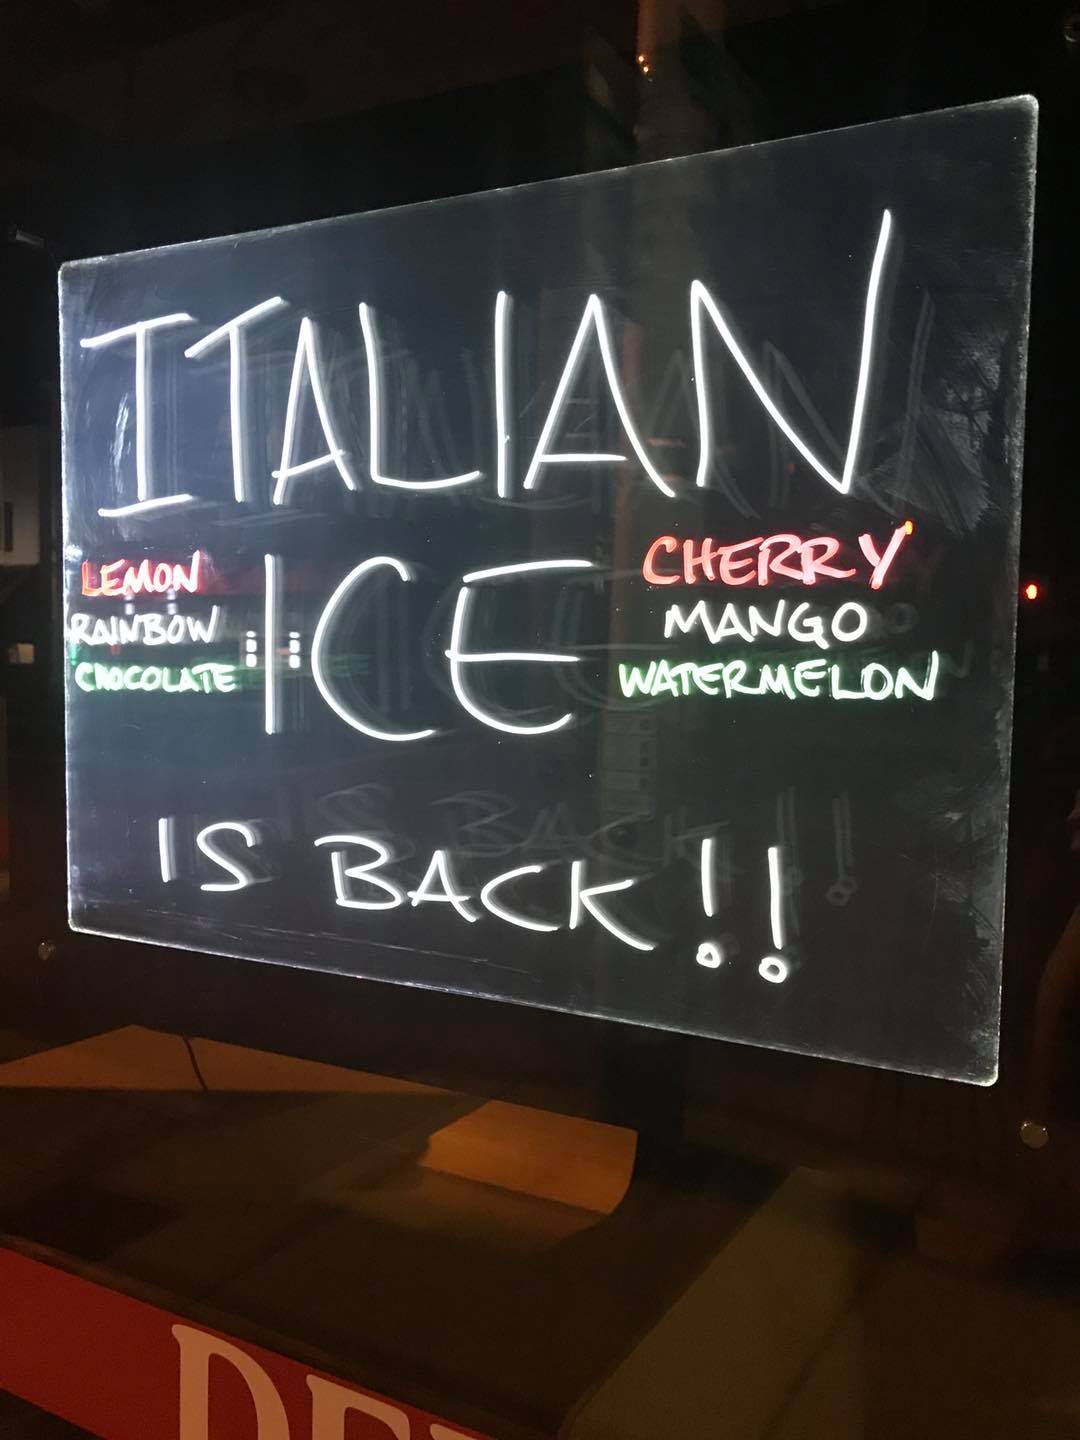 ITALIAN
LEMON
RAINBOW
CHOCOLATE
ICE
CHERRY
MANGO
WATERMELON
IS BACK!!